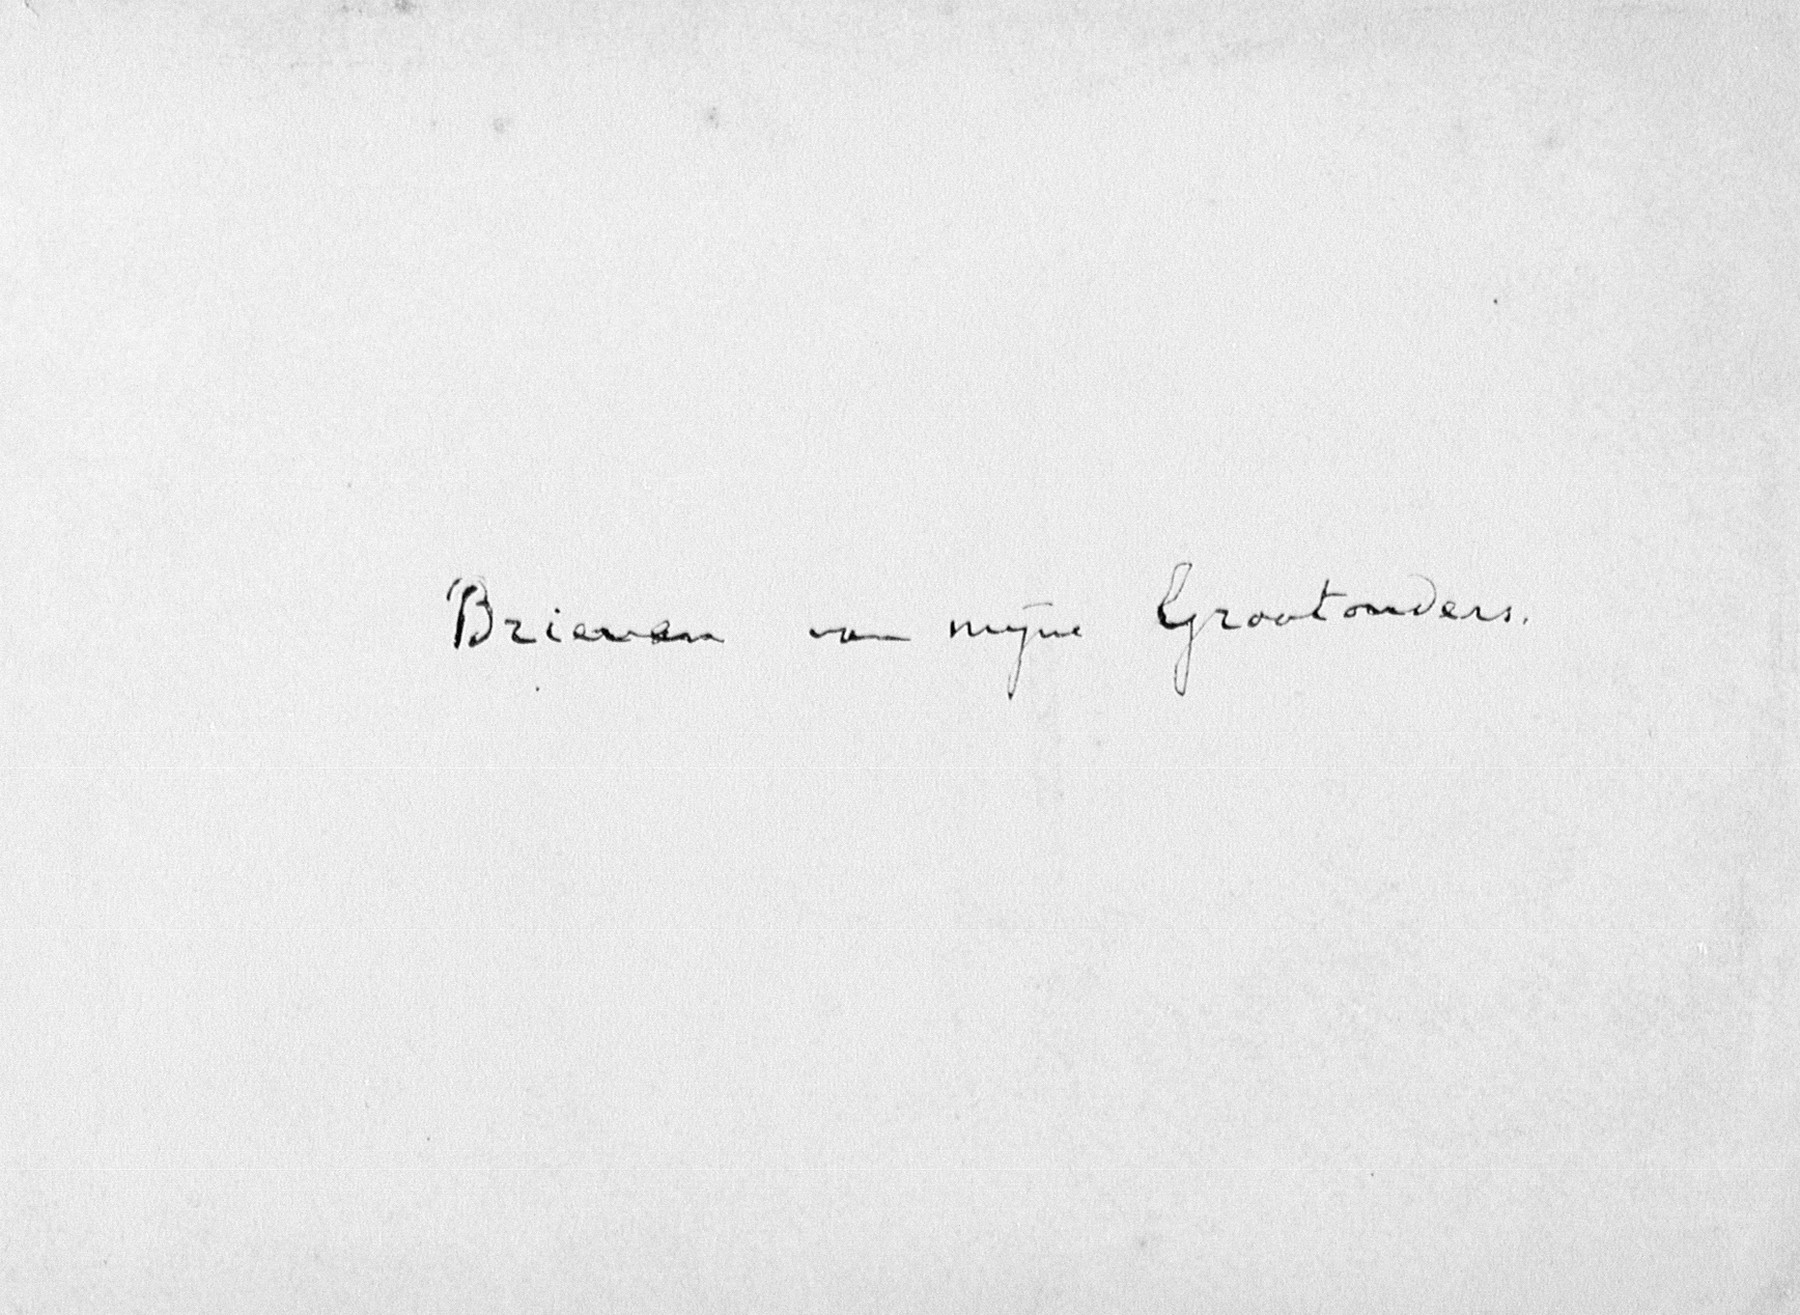 Brieven van mijne Grootouders.